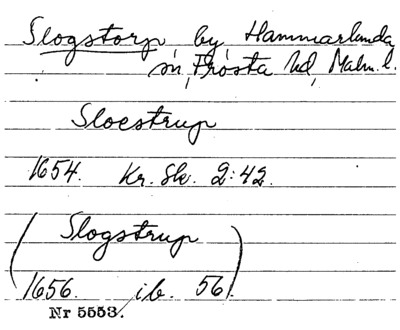 Slogstorp by, Hammarlunda
sn, Frosta hd, Malm. l.
Sloestrup
1654. Kr. Sk. 2:42.
(Slogstrup
1656. ib. 56).
Nr 5553.